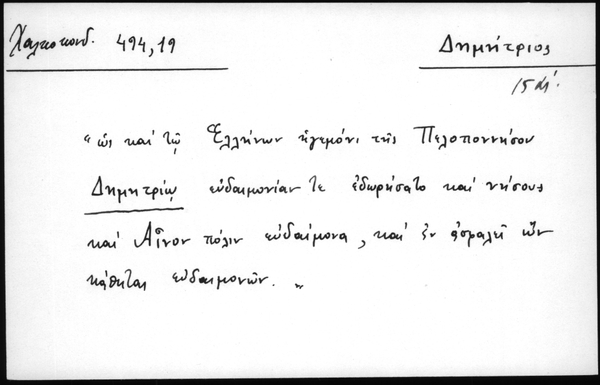 Χαλκοκονδ. 494,19
Δημήτριος
15 αἰ.
"ὡς καὶ τῷ Ἑλλήνων ἡγεμόνι τῆς Πελοποννήσου
Δημητρίῳ εὐδαιμονίαν τε ἐδωρήσατο καὶ νήσους
καὶ Αἶνον πόλιν εὐδαίμονα, καὶ ἐν ἀσφαλεῖ ὢν
κάθηται εὐδαιμονῶν."